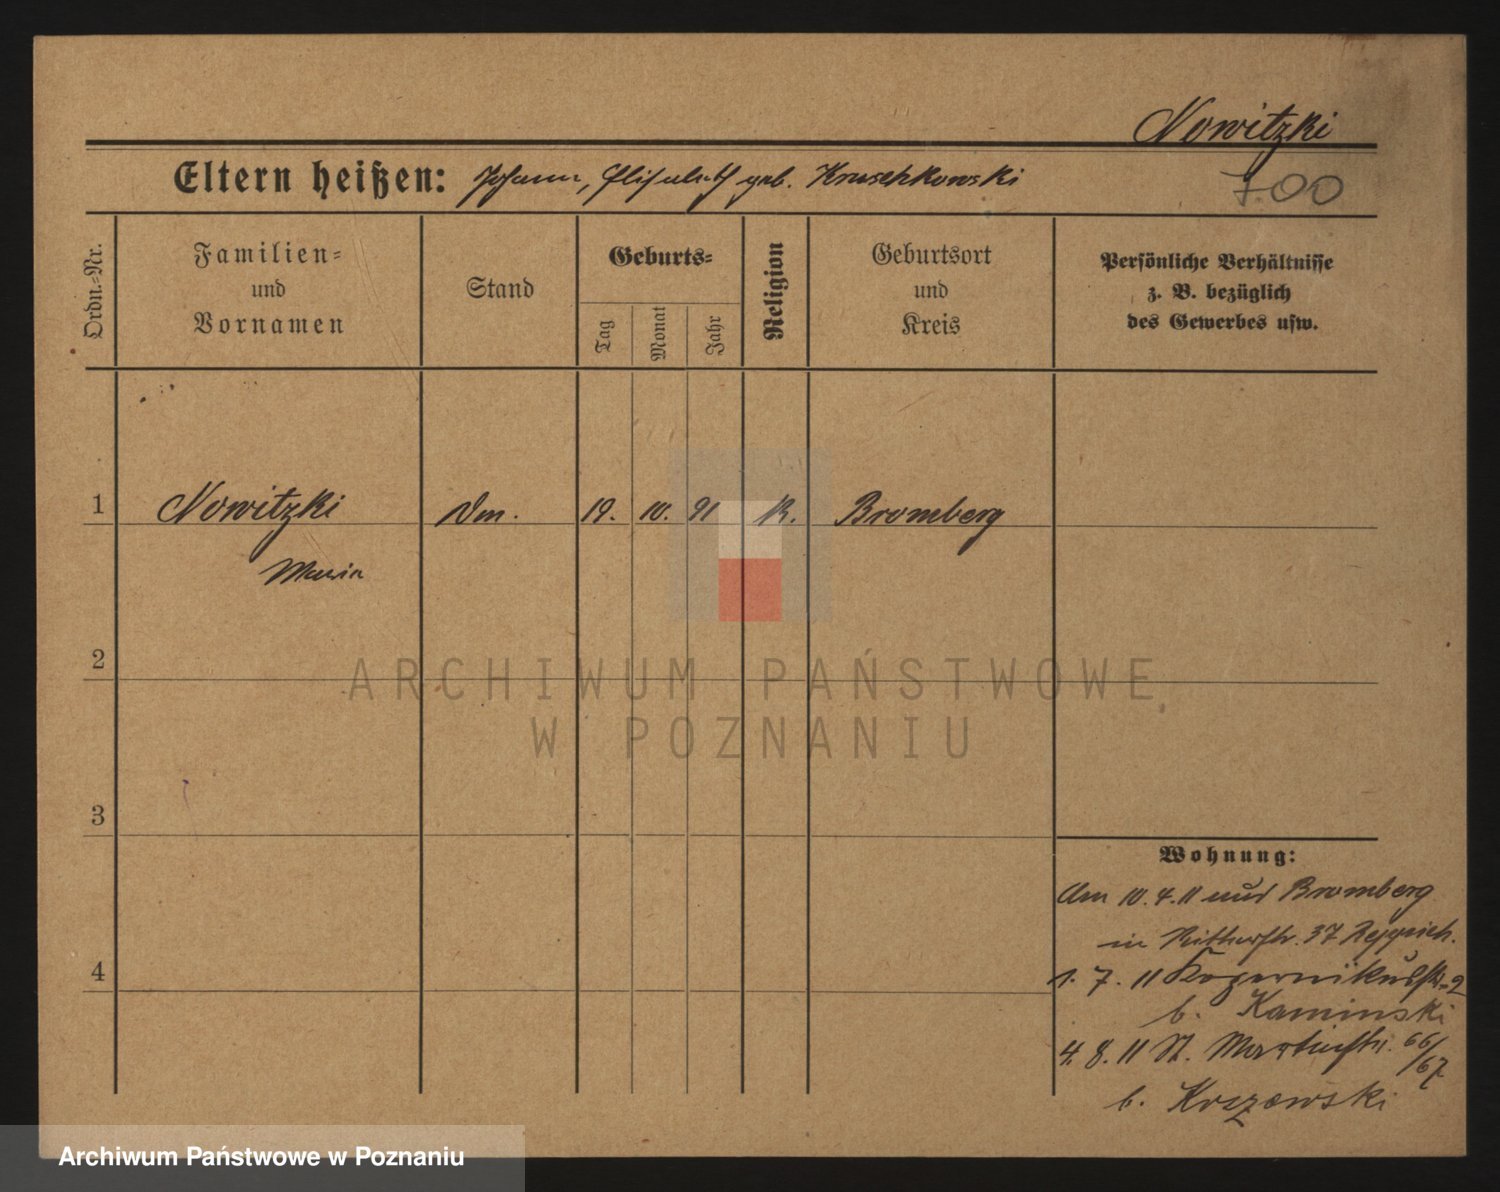 Nowitzki
Eltern heißen: Johann, Elisabeth geb. Kruschkowski
700
Ordn.-Nr.
Familien-
und
Vornamen
Stand
Geburts-
Tag
Monat
Jahr
Religion
Geburtsort
und
Kreis
Persönliche Verhältnisse
z. B. bezüglich
des Gewerbes usw.
1 Nowitzki 19. 10. 91 K. Bromberg
Maria
2
3
4
Wohnung:
Am 10.4.11 aus Bromberg
in Ritterstr. 37
1. 7. 11 Kopernikusstr. 2
b. Kaminski
4. 8. 11 St. Martinstr. 66/67
b. Koszewski
ARCHIWUM PAŃSTWOWE
W POZNANIU
Archiwum Państwowe w Poznaniu